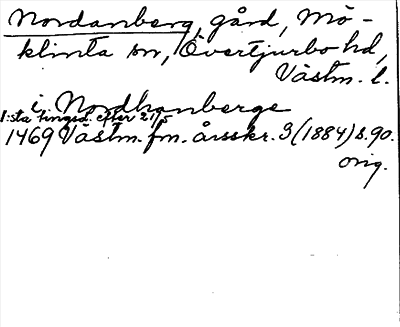 Nordanberg, gård, Mö-
klinta sn, Övertjurbo hd,
Västm. l.
i Nordhanberge
1:sta tingsd. efter 21/5
1469 Västm. fm. årsskr. 3 (1884) s. 90.
orig.